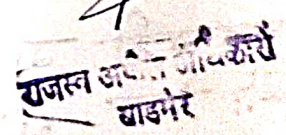 राजस्व अपील अधिकारी
बाडमेर